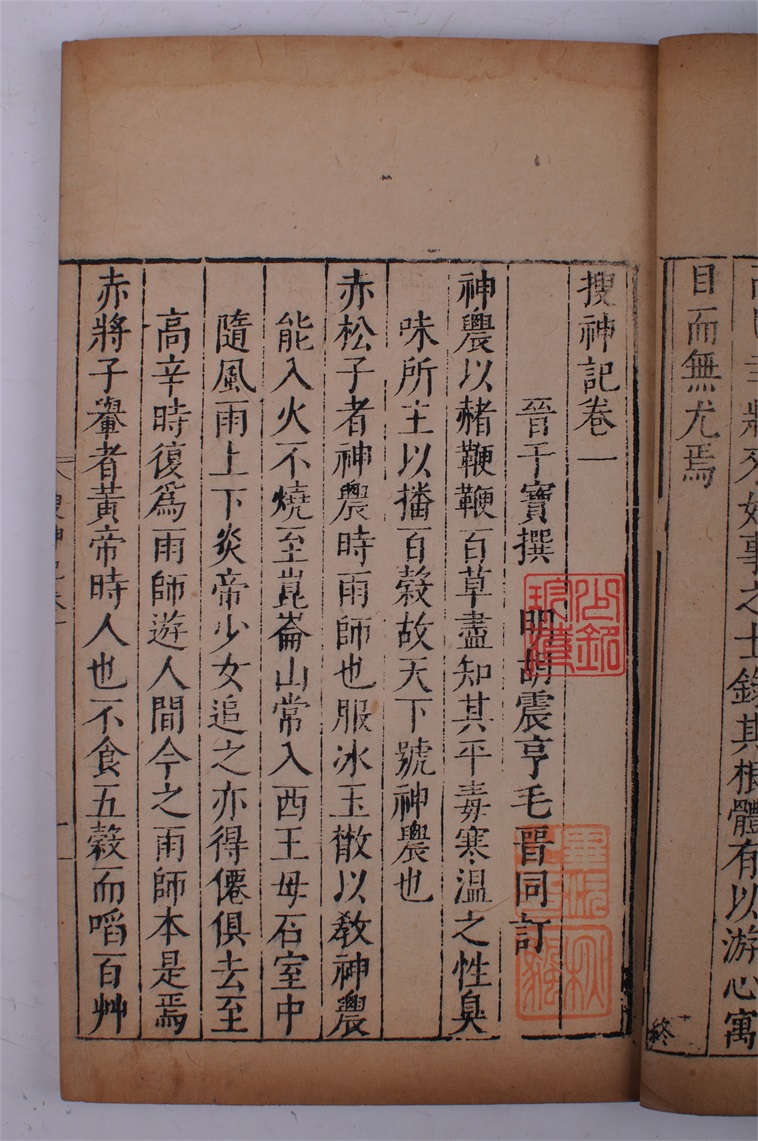 幸將來好事之士錄其根體有以游心寓
目而無尤焉
終
搜神記卷一
晉干寶撰 明胡震亨毛晉同訂
神農以赭鞭鞭百草盡知其平毒寒溫之性臭
味所主以播百穀故天下號神農也
赤松子者神農時雨師也服冰玉散以敎神農
能入火不燒至崑崙山常入西王母石室中
隨風雨上下炎帝少女追之亦得僊俱去至
高辛時復爲雨師遊人間今之雨師本是焉
赤將子轝者黃帝時人也不食五穀而啗百艸